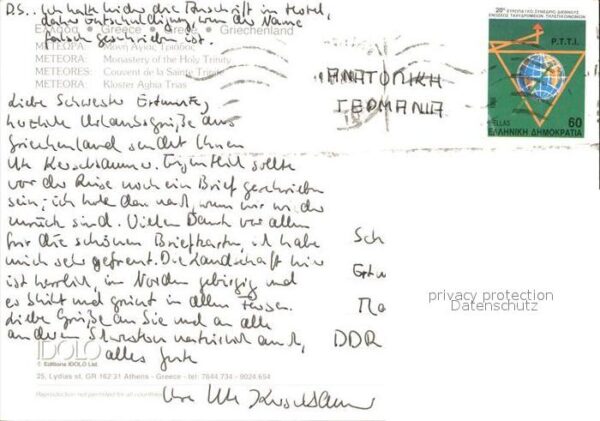 P.S.: Ich hatte leider die Anschrift im Hotel,
daher Entschuldigung, wenn der Name
falsch geschrieben ist.
Greece
Griechenland
ΜΕΤΕΩΡΑ: Μονή Αγίας Τριάδος
METEORA: Monastery of the Holy Trinity
METEORES: Couvent de la Sainte Trinité
METEORA: Kloster Aghia Trias
20ο ΕΥΡΩΠΑΪΚΟ ΣΥΝΕΔΡΙΟ ΔΙΕΘΝΟΥΣ
ΕΝΩΣΕΩΣ ΤΑΧΥΔΡΟΜΙΚΩΝ ΤΗΛΕΠΙΚΟΙΝΩΝΙΩΝ
P.T.T.I.
HELLAS
60
ΕΛΛΗΝΙΚΗ ΔΗΜΟΚΡΑΤΙΑ
ΑΝΑΤΟΛΙΚΗ
ΓΕΡΜΑΝΙΑ
liebe Schwester
herzliche Urlaubsgrüße aus
Griechenland sendet Ihnen
Ute Eigentlich sollte
vor der Reise noch ein Brief geschrieben
sein; ich hole das nach, wenn wir wieder
zurück sind. Vielen Dank vor allem
für die schönen Briefkarten, ich habe
mich sehr gefreut. Die Landschaft hier
ist herrlich, im Norden gebirgig und
es blüht und grünt in allen Farben.
Liebe Grüße an Sie und an alle
anderen Schwestern natürlich auch,
alles Gute
Ihre Ute
Sch
DDR
privacy protection
Datenschutz
IDOLO
© Editions IDOLO Ltd.
25, Lydias st. GR 162 31 Athens - Greece - tel: 7644 734 - 9024 654
Reproduction not permited for all countries